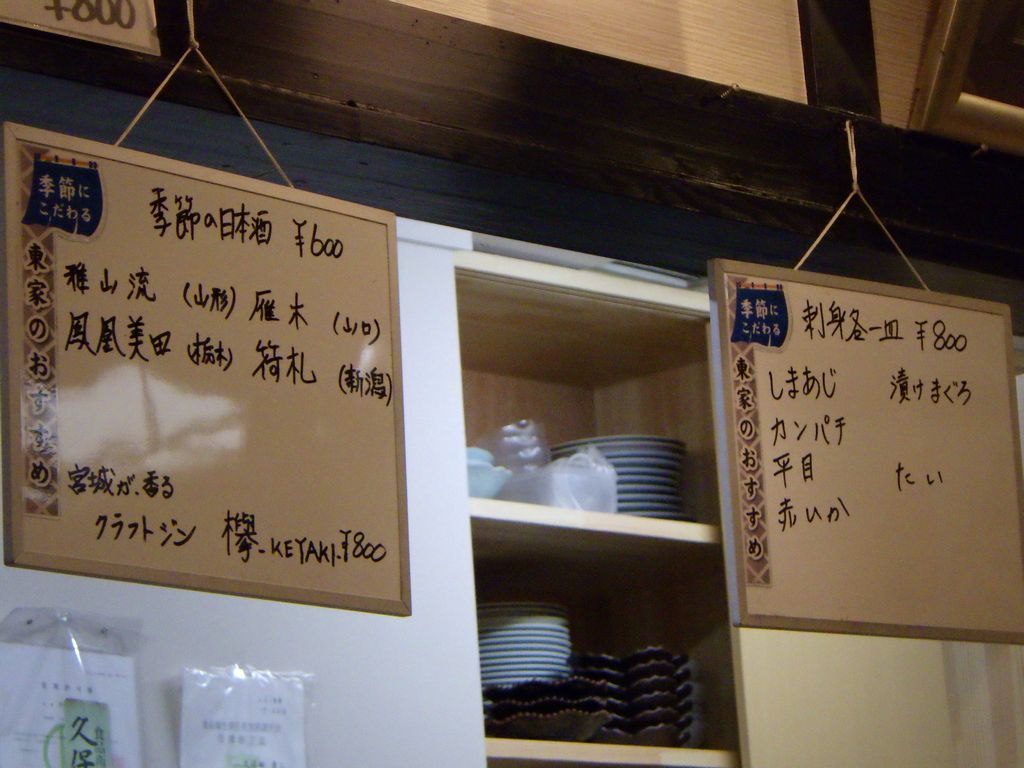 ¥800
季節に
こだわる
東家のおすすめ
季節の日本酒 ¥600
雅山流 (山形) 雁木 (山口)
鳳凰美田 (栃木) 荷札 (新潟)
宮城が、香る
クラフトジン 欅-KEYAKI-¥800
季節に
こだわる
東家のおすすめ
刺身各一皿 ¥800
しまあじ 漬けまぐろ
カンパチ
平目 たい
赤いか
久保